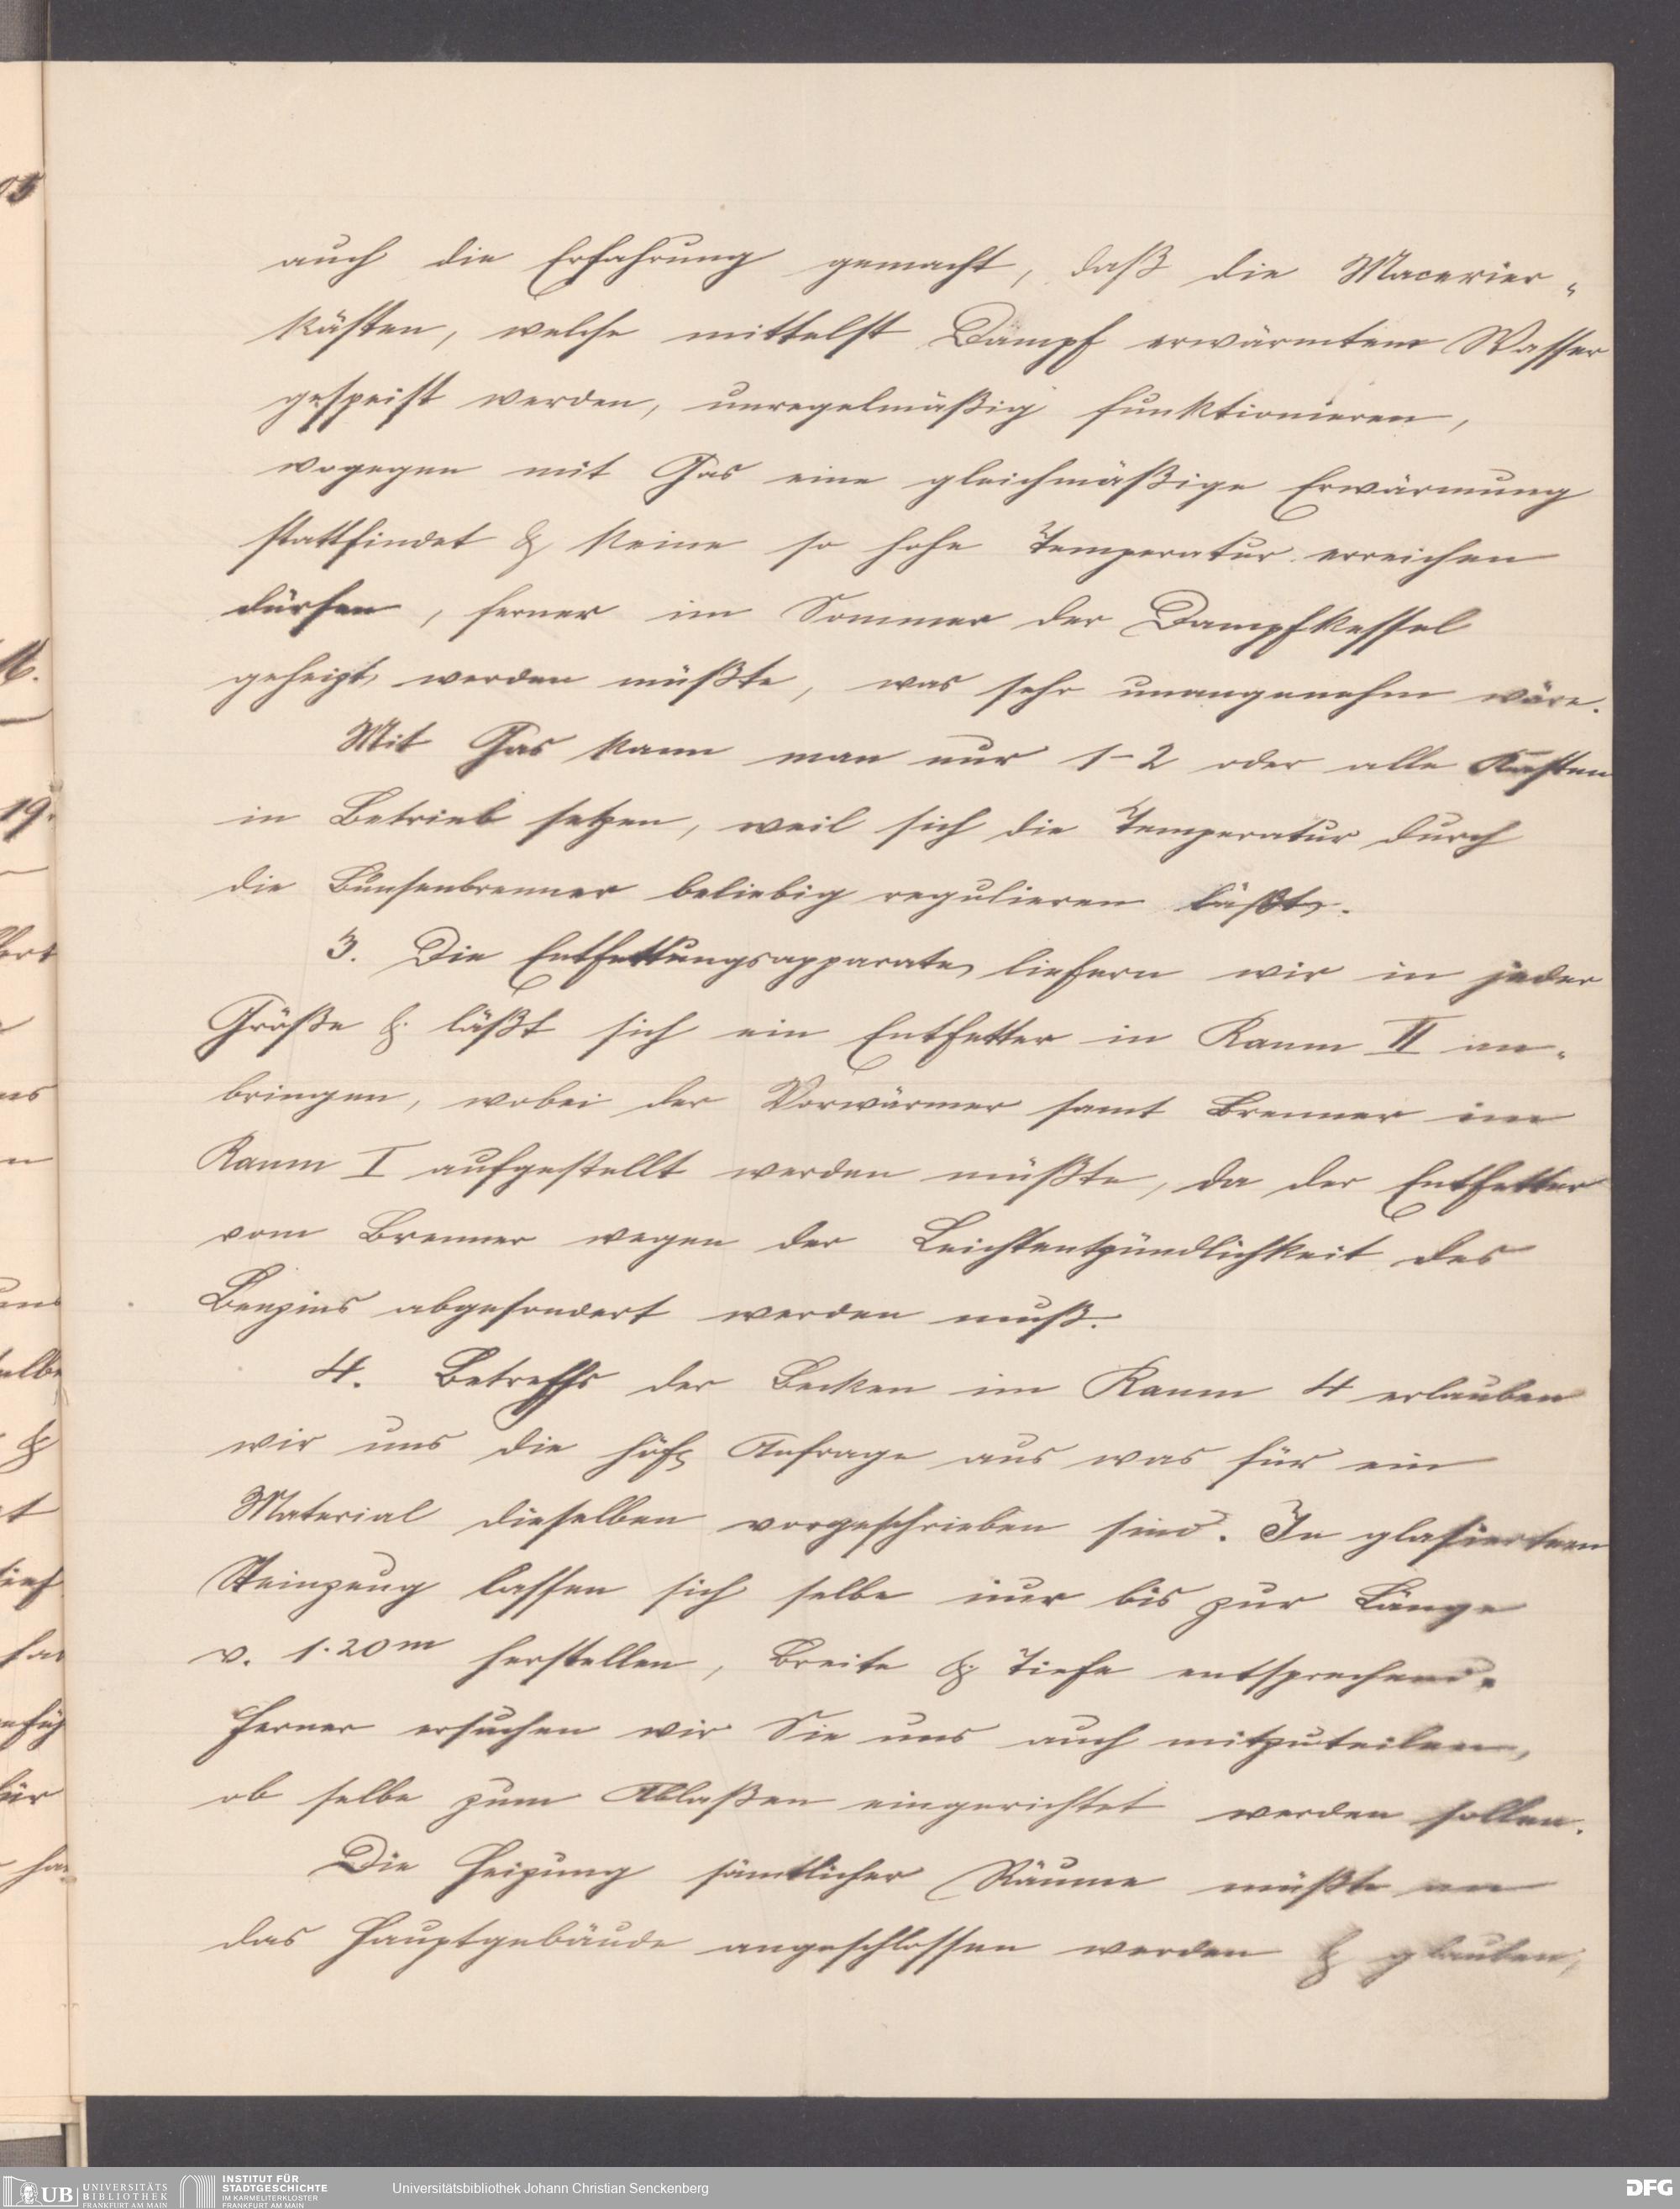 auch die Erfahrung gemacht, daß die Macerier-
kästen, welche mittelst Dampf erwärmtem Wasser
gespeist werden, unregelmäßig funktionieren,
wogegen mit Gas eine gleichmäßige Erwärmung
stattfindet & keine so hohe Temperatur erreichen
dürfen, ferner im Sommer der Dampfkessel
geheizt werden müßte, was sehr unangenehm wäre.
Mit Gas kann man nur 1-2 oder alle Kästen
in Betrieb setzen, weil sich die Temperatur durch
die Bunsenbrenner beliebig regulieren läßt.
3. Die Entfettungsapparate liefern wir in jeder
Größe & läßt sich ein Entfetter in Raum II an-
bringen, wobei der Vorwärmer samt Brenner im
Raum I aufgestellt werden müßte, da der Entfetter
vom Brenner wegen der Leichtentzündlichkeit des
Benzins abgesondert werden muß.
4. Betreffs der Becken im Raum 4 erlauben
wir uns die höfl Anfrage aus was für ein
Material dieselben vorgeschrieben sind. In glasiertem
Steinzeug lassen sich selbe nur bis zur Länge
v. 1.20m herstellen, Breite & Tiefe entsprechend.
Ferner ersuchen wir Sie uns auch mitzuteilen,
ob selbe zum Ablaßen eingerichtet werden sollen.
Die Heizung sämtlicher Räume müßte an
das Hauptgebäude angeschlossen werden & glauben,
UB UNIVERSITÄTS
BIBLIOTHEK
FRANKFURT AM MAIN
INSTITUT FÜR
STADTGESCHICHTE
IM KARMELITERKLOSTER
FRANKFURT AM MAIN
Universitätsbibliothek Johann Christian Senckenberg
DFG